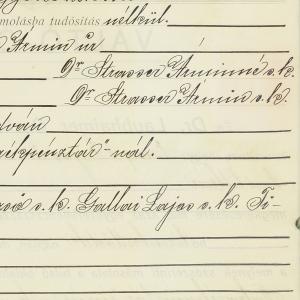 molásba tudósítás nélkül.
Armin úr
Dr Strasser Árminné s.k.
Dr Strasser Ármin s.k.
István
takékpénztár"-nál.
s.k. Gallai Lajos s.k. Ti-